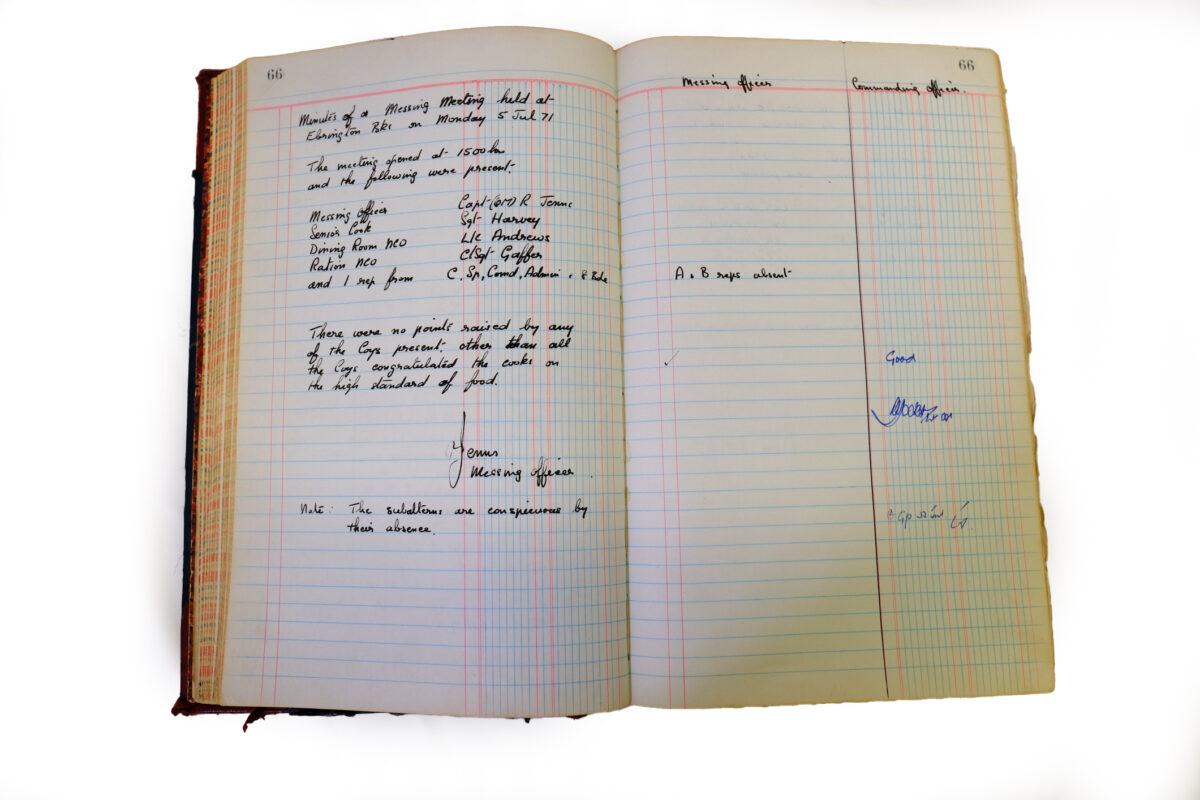 66
Minutes of a Messing Meeting held at
Ebrington Bks on Monday 5 Jul 71
The meeting opened at 1500 hr
and the following were present.
Messing Officer Capt (QM) R Jenns
Senior Cook Sgt Harvey
Dining Room NCO L/c Andrews
Ration NCO C/Sgt Gaffer
and 1 rep from C, Sp, Comd, Admin
There were no points raised by any
of the Coys present. other than all
the Coys congratulated the cooks on
the high standard of food.
Jenns
Messing Officer.
Note: The subalterns are conspicuous by
their absence.
66
Messing Officer Commanding Officer.
A & B reps absent
✓ Good